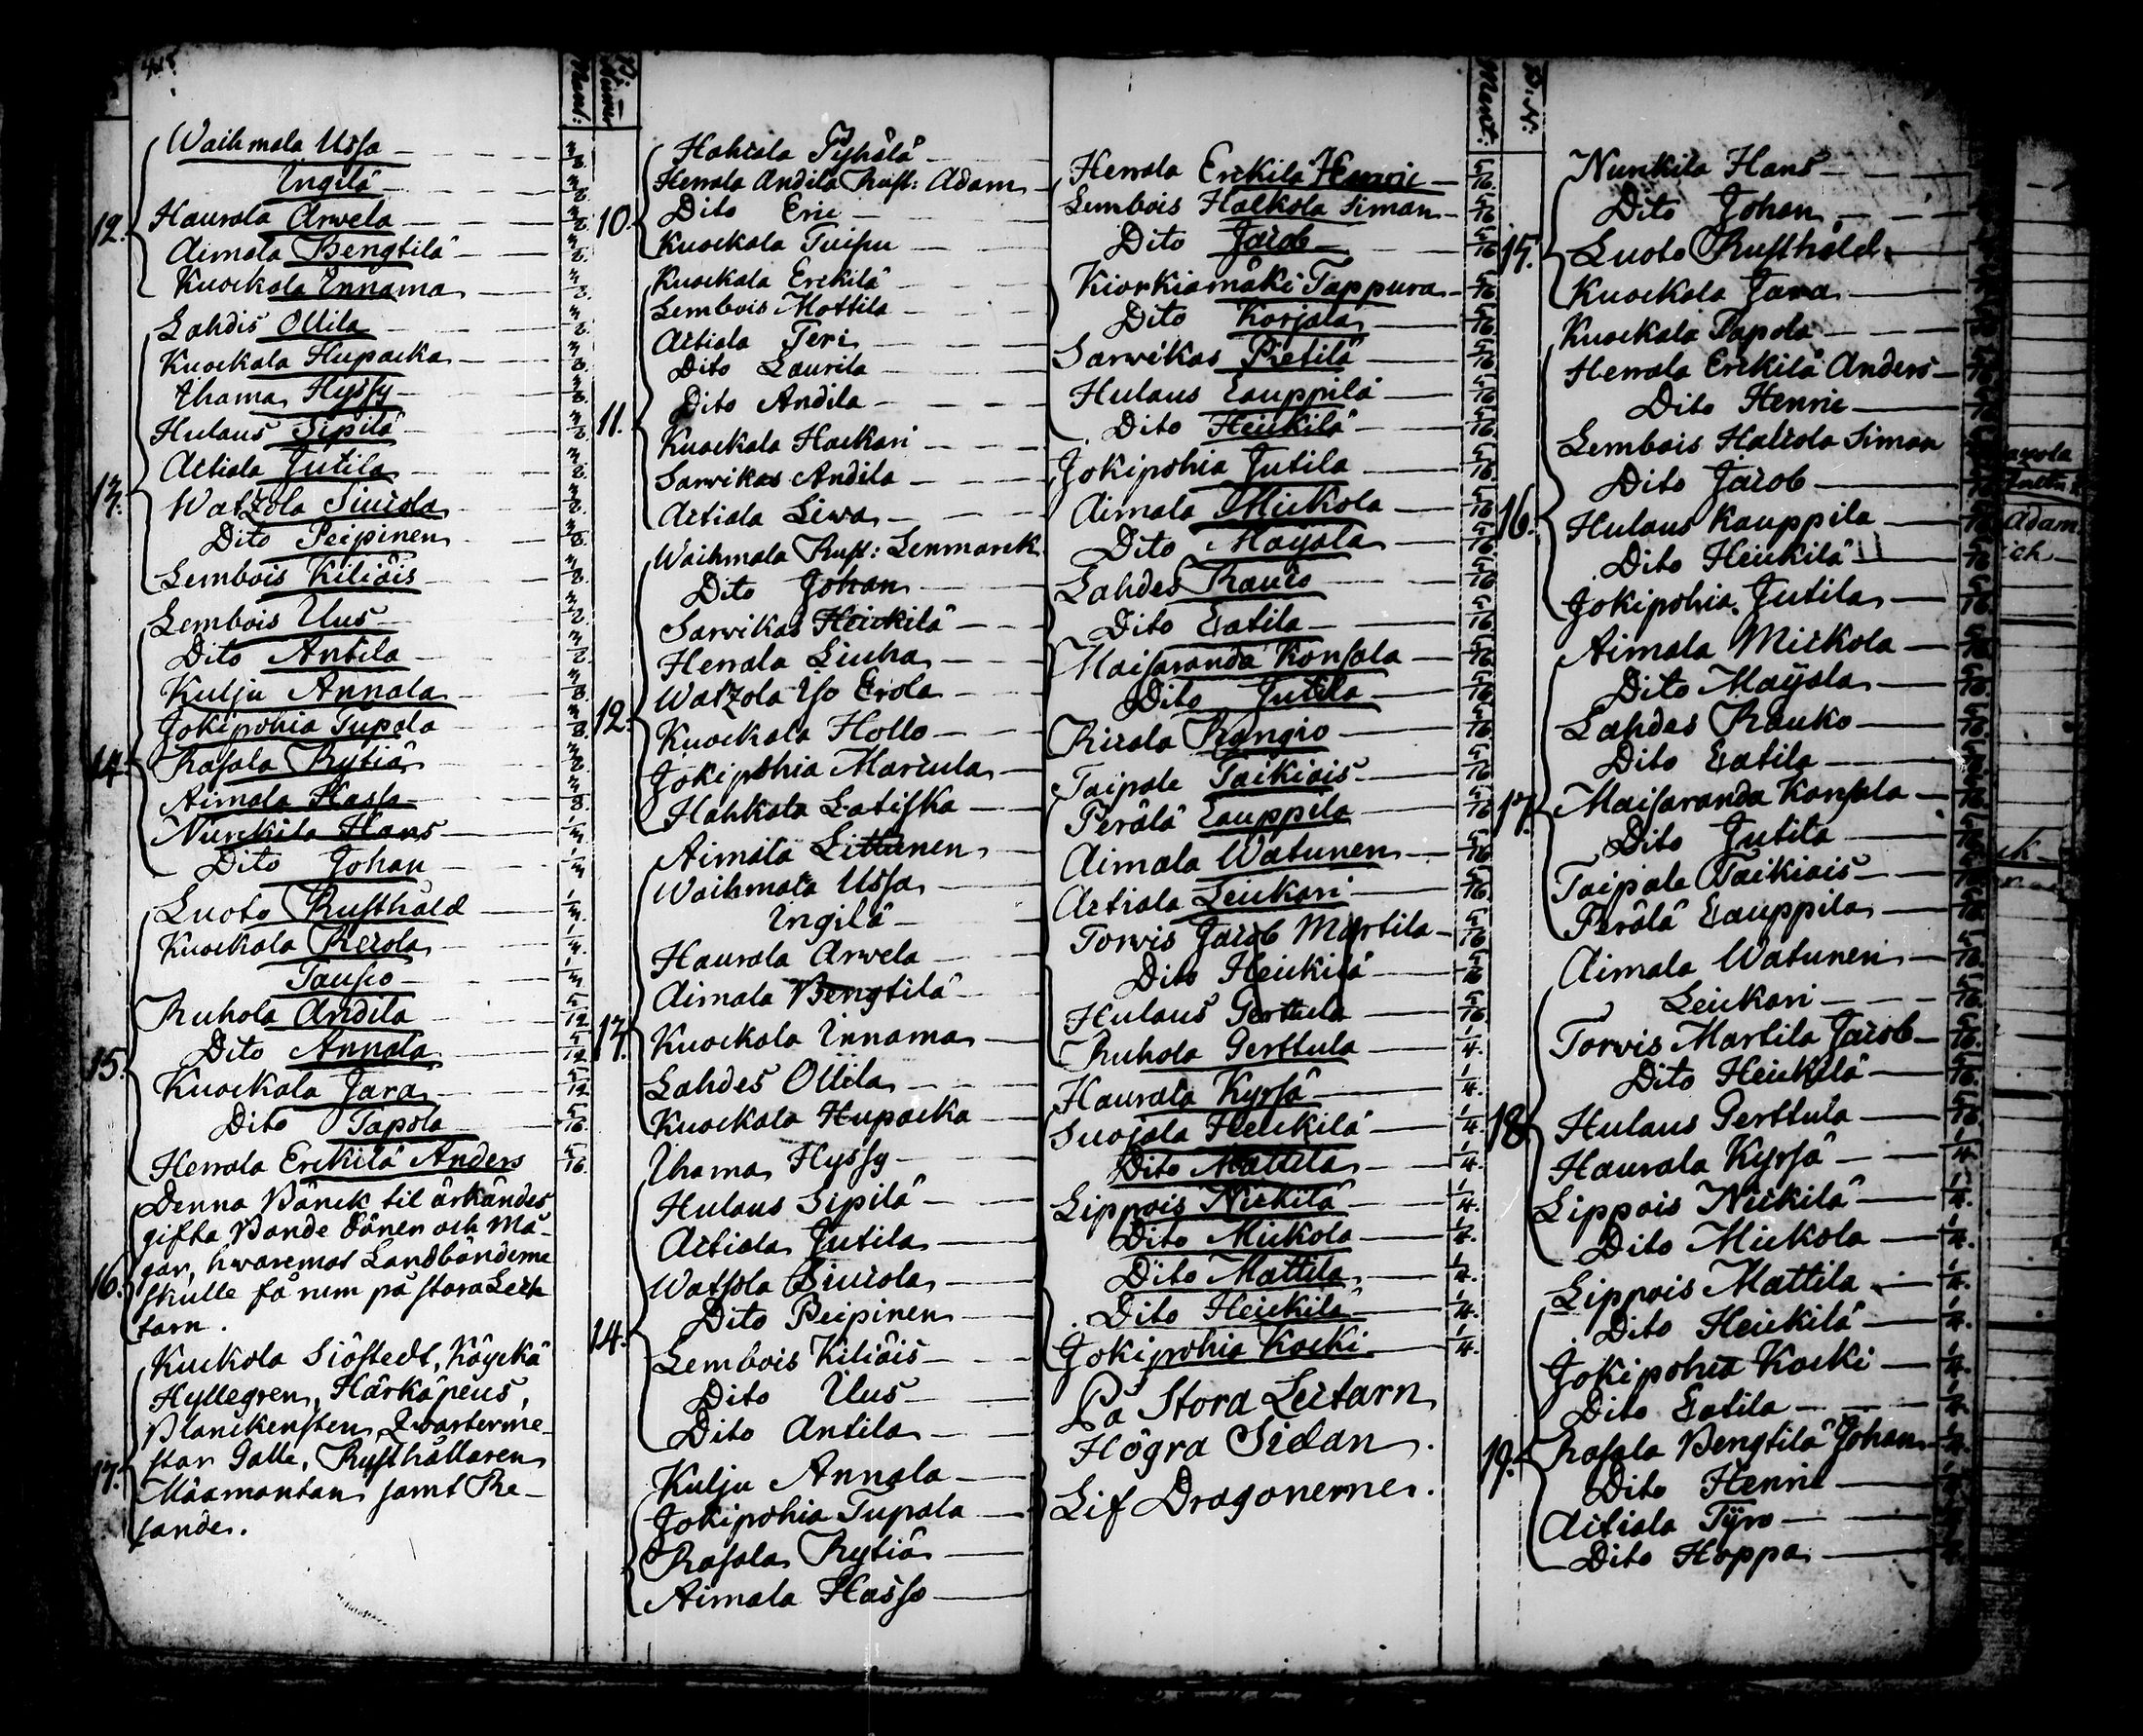 Mant:
Waihmala Ussa 3/8
Ingilä 3/8
12. Haurala Arwela 3/8
Aimala Bengtilä 3/8
Kuockala Innama 3/8
Lahdis Ollila 3/8
Kuockala Hupacka 3/8
Uhama Hyssy 3/8
Hulaus Sipilä 3/8
Actiala Jutila 3/8
13. Watzola Siurola 3/8
Dito Peipinen 3/8
Lembois Kiliäis 3/8
Lembois Uus 3/8
Dito Antila 3/8
Kulju Annala 3/8
Jokipohia Tupala 3/8
14. Rasala Rytiä 3/8
Aimala Hasso 3/8
Nurckila Hans 1/3
Dito Johan 1/3
Luoto Rusthåld 1/3
Kuockala Recola 1/3
Tausco 1/3
Ruhola Andila 5/12
15. Dito Annala 5/12
Kuockala Jara 5/12
Dito Tapola 5/16
Herrala Erckilä Anders 5/16
Denna Bänck til ärkändes
gifta Bonde Sönen och Må-
gar, hwaremot Landbönderne
16. skulle få rum på stora Leck
tarn.
Kuckola Siöstedt, Köyckä
Hyllegren, Härkäpeus,
Planckensten, Qwarterme-
17. star Galle, Rusthållaren
Måamantan samt Re-
sande.
B. Num
Hahcala Pyhälä
Herrala Andila Rust: Adam
10. Dito Eric
Kuockala Tuipu
Kuockala Erckilä
Lembois Mottila
Actiala Teri
Dito Laurila
11. Dito Andila
Kuockala Hackari
Sarvikas Andila
Actiala Liwa
Waihmala Rust: Lenmarck
Dito Johan
Sarvikas Heickilä
Herrala Liuha
Watzola Yso Erola
12. Kuockala Hollo
Jokipohia Marcula
Hahkala Latiska
Aimala Littunen
Waihmala Ussa
Ingilä
Haurala Arwela
Aimala Bengtilä
13. Kuockala Innama
Lahdes Ollila
Kuockala Hupacka
Uhama Hyssy
Hulaus Sipilä
Actiala Jutila
Watsola Siurola
Dito Peipinen
14. Lembois Kiliäis
Dito Uus
Dito Antila
Kulju Annala
Jokipohia Tupala
Rasala Rytiä
Aimala Hasso
Mant:
Herrala Erckila Henric 5/16
Lembois Halkola Simon 5/16
Dito Jacob 5/16
Kiorkiamäki Tappura 5/16
Dito Korjala 5/16
Sarvikas Pietilä 5/16
Hulaus Eauppilä 5/16
Dito Heickilä 5/16
Jokipohia Jutila 5/16
Aimala Mickola 5/16
Dito Mayala 5/16
Lahdes Rauco 5/16
Dito Eatila 5/16
Maisaranda Konsala 5/16
Dito Jutila 5/16
Ricala Kongio 5/16
Taipale Taikiais 5/16
Perälä Eauppila 5/16
Aimala Watunen 5/16
Actiala Leickari 5/16
Torvis Jacob Martila 5/16
Dito Heickilä 5/16
Hulaus Gerttula 5/16
Ruhola Gerttula 1/4.
Haurala Kyrsä 1/4.
Suojala Heickilä 1/4.
Dito Mattila 1/4.
Lippois Nickilä 1/4.
Dito Mickola 1/4.
Dito Mattila 1/4.
Dito Heickilä 1/4.
Jokipohia Kocki 1/4.
På Stora Lectarn
Högra Sidan.
Lif Dragonerne.
B. N:
Nurckila Hans
Dito Johan
15. Luoto Rusthåld
Kuockala Jara
Kuockala Tapola
Herrala Erckilä Anders
Dito Henric
Lembois Halcola Simon
Dito Jacob
16. Hulaus Kauppila
Dito Heickilä
Jokipohia Jutila
Aimala Mickola
Dito Mayala
Lahdes Rauko
Dito Eatila
17. Maisaranda Konsala
Dito Jutila
Taipale Taikiais
Perälä Eauppila
Aimala Watunen
Leickari
Torvis Martila Jacob
Dito Heickilä
18. Hulaus Gerttula
Haurala Kyrsä 1/4.
Lippois Nickilä 1/4.
Dito Mickola 1/4.
Lippois Mattila 1/4.
Dito Heickilä 1/4.
Jokipohia Kocki 1/4.
Dito Eatila
19. Rasala Bengtilä Johan
Dito Henric
Actiala Tyro
Dito Hoppa
Adam